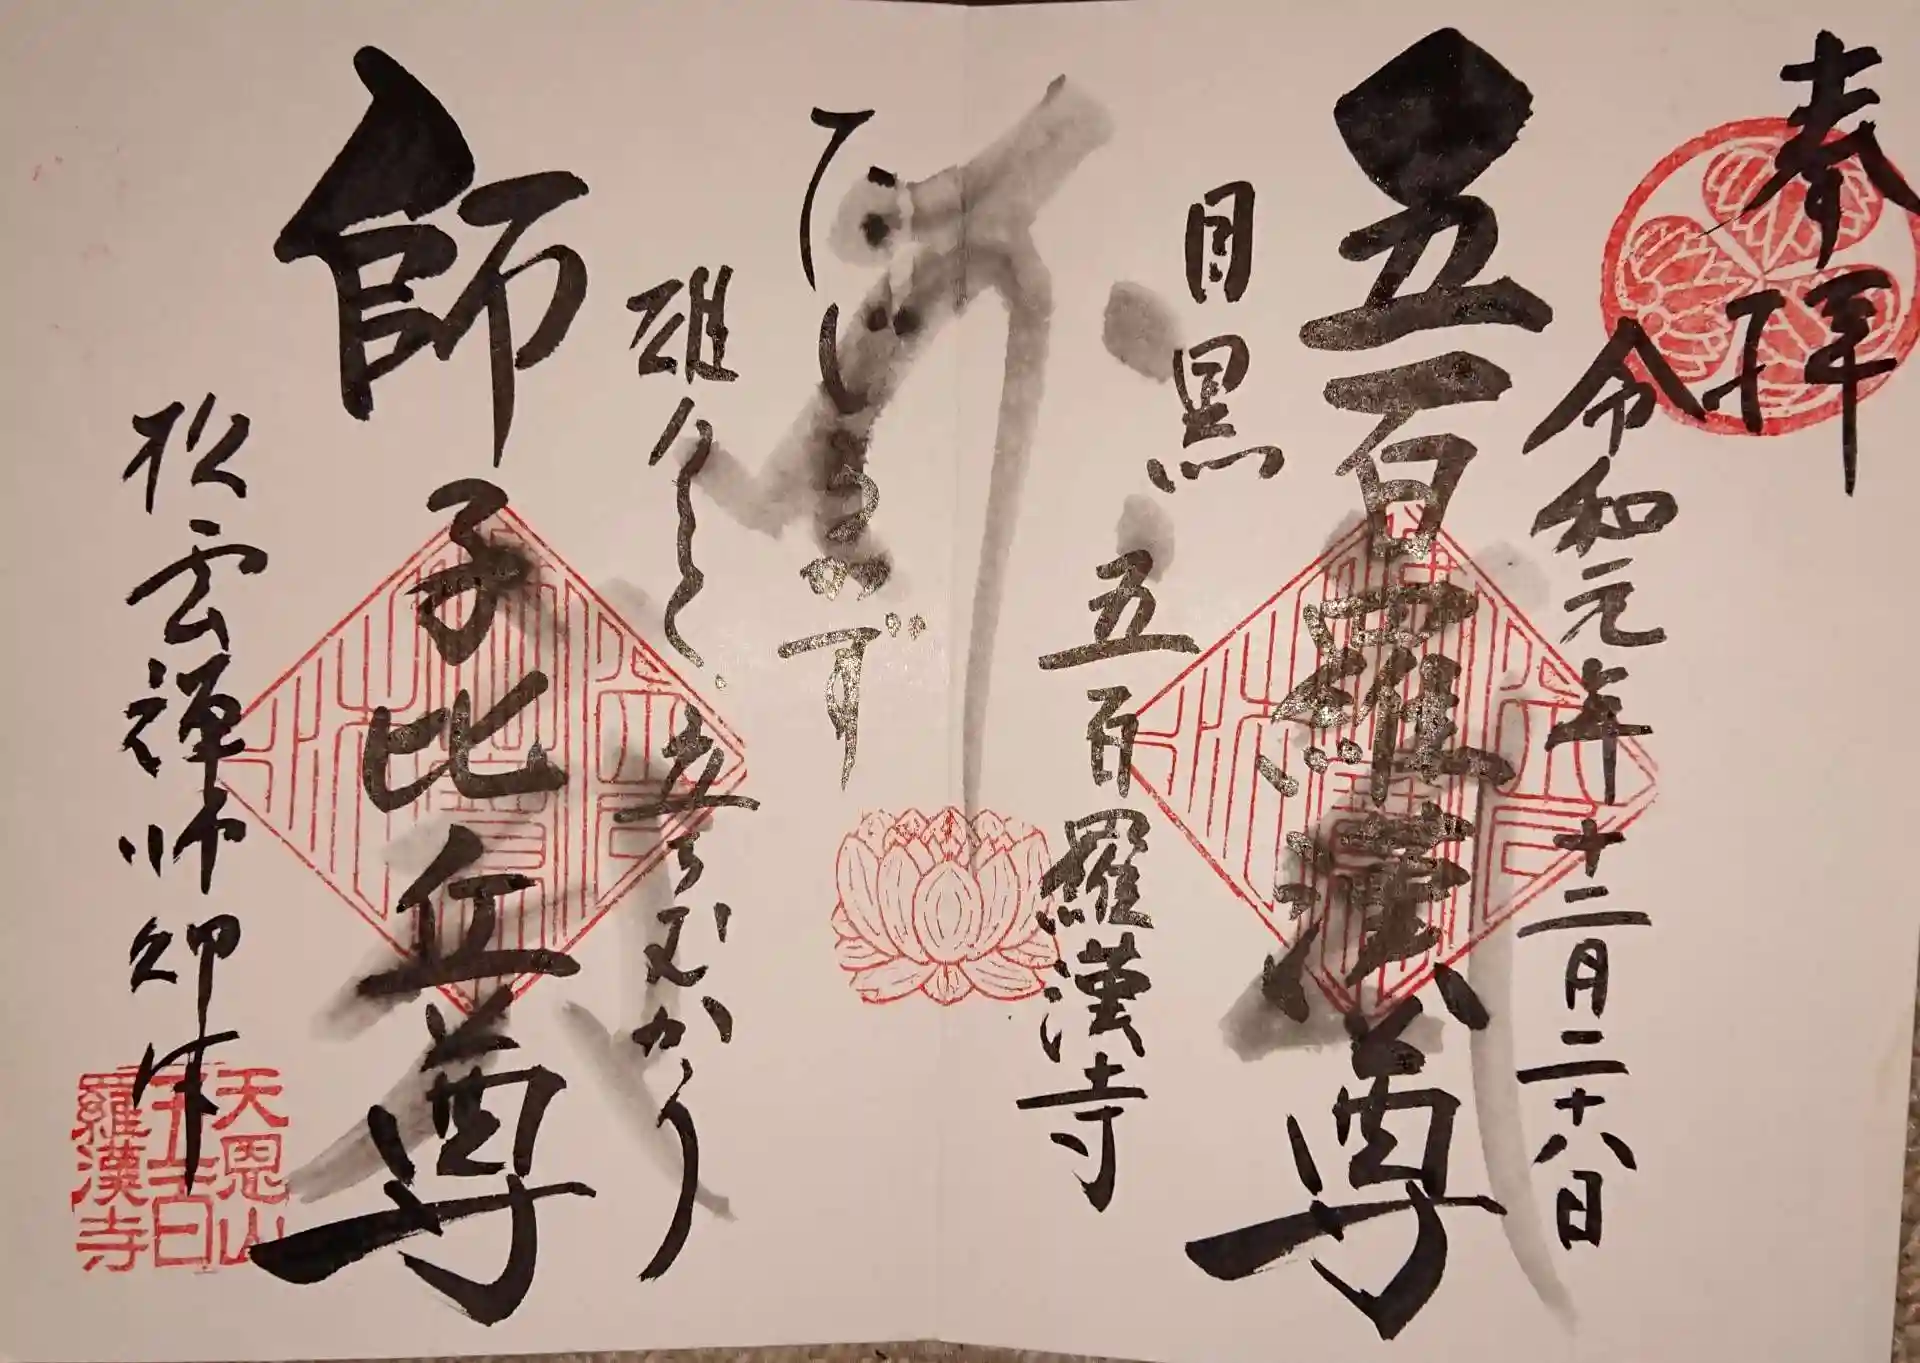 奉拝
令和元年十二月二十八日
五百羅漢尊
目黒 五百羅漢寺
雄々しく 立ちむかう
師子比丘尊
松雲禅師御作
天恩山
五百
羅漢寺